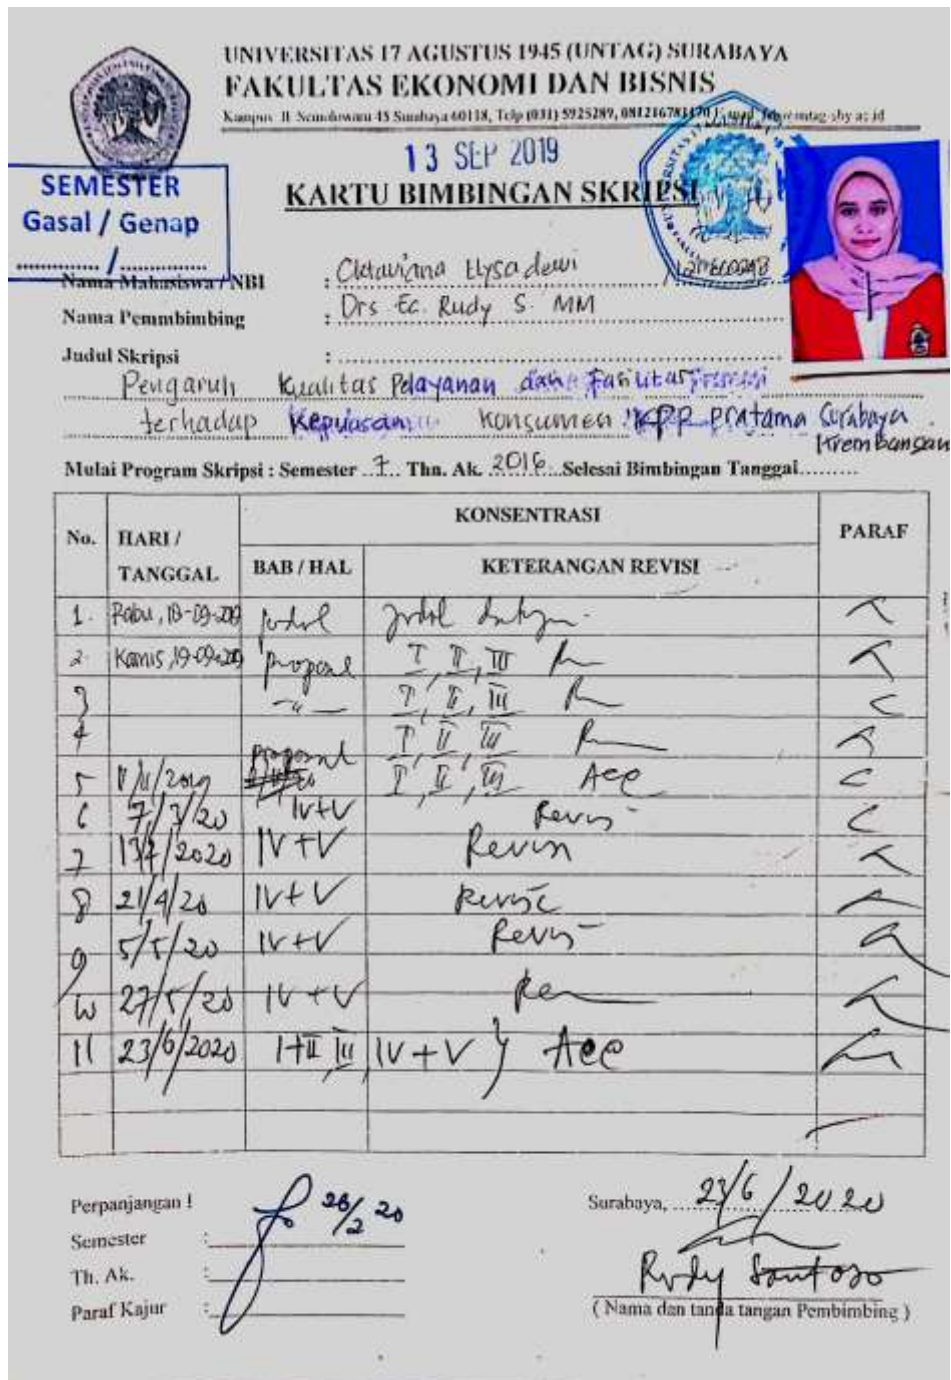 UNIVERSITAS 17 AGUSTUS 1945 (UNTAG) SURABAYA
FAKULTAS EKONOMI DAN BISNIS
Kampus Jl. Semolowaru 45 Surabaya 60118, Telp (031) 5925289, 081216781470
13 SEP 2019
KARTU BIMBINGAN SKRIPSI
SEMESTER
Gasal / Genap
............./.............
Nama Mahasiswa / NBI : Oktaviana Elysa dewi /
Nama Pemmbimbing : Drs. Ec. Rudy S. MM
Judul Skripsi :
Pengaruh Kualitas Pelayanan dan Fasilitas
terhadap Kepuasan Konsumen KPP Pratama Surabaya
Krembangan
Mulai Program Skripsi : Semester 7 Thn. Ak. 2016 Selesai Bimbingan Tanggal.........
No. HARI / TANGGAL KONSENTRASI PARAF
BAB / HAL KETERANGAN REVISI
1. Rabu, 18-09-2019 judul judul
2. Kamis, 19-09-2019 proposal I, II, III
3 I, II, III
4 I, II, III
5 proposal I, II, III Acc
6 7/3/20 IV+V Revisi
7 2020 IV+V Revisi
8 21/4/20 IV+V Revisi
9 5/5/20 IV+V Revisi
10 27/5/20 IV+V
11 23/6/2020 I+II III IV+V } Acc
Perpanjangan !
Semester :
Th. Ak. :
Paraf Kajur :
26/2 20
Surabaya, 23/6/2020
Rudy Santoso
( Nama dan tanda tangan Pembimbing )